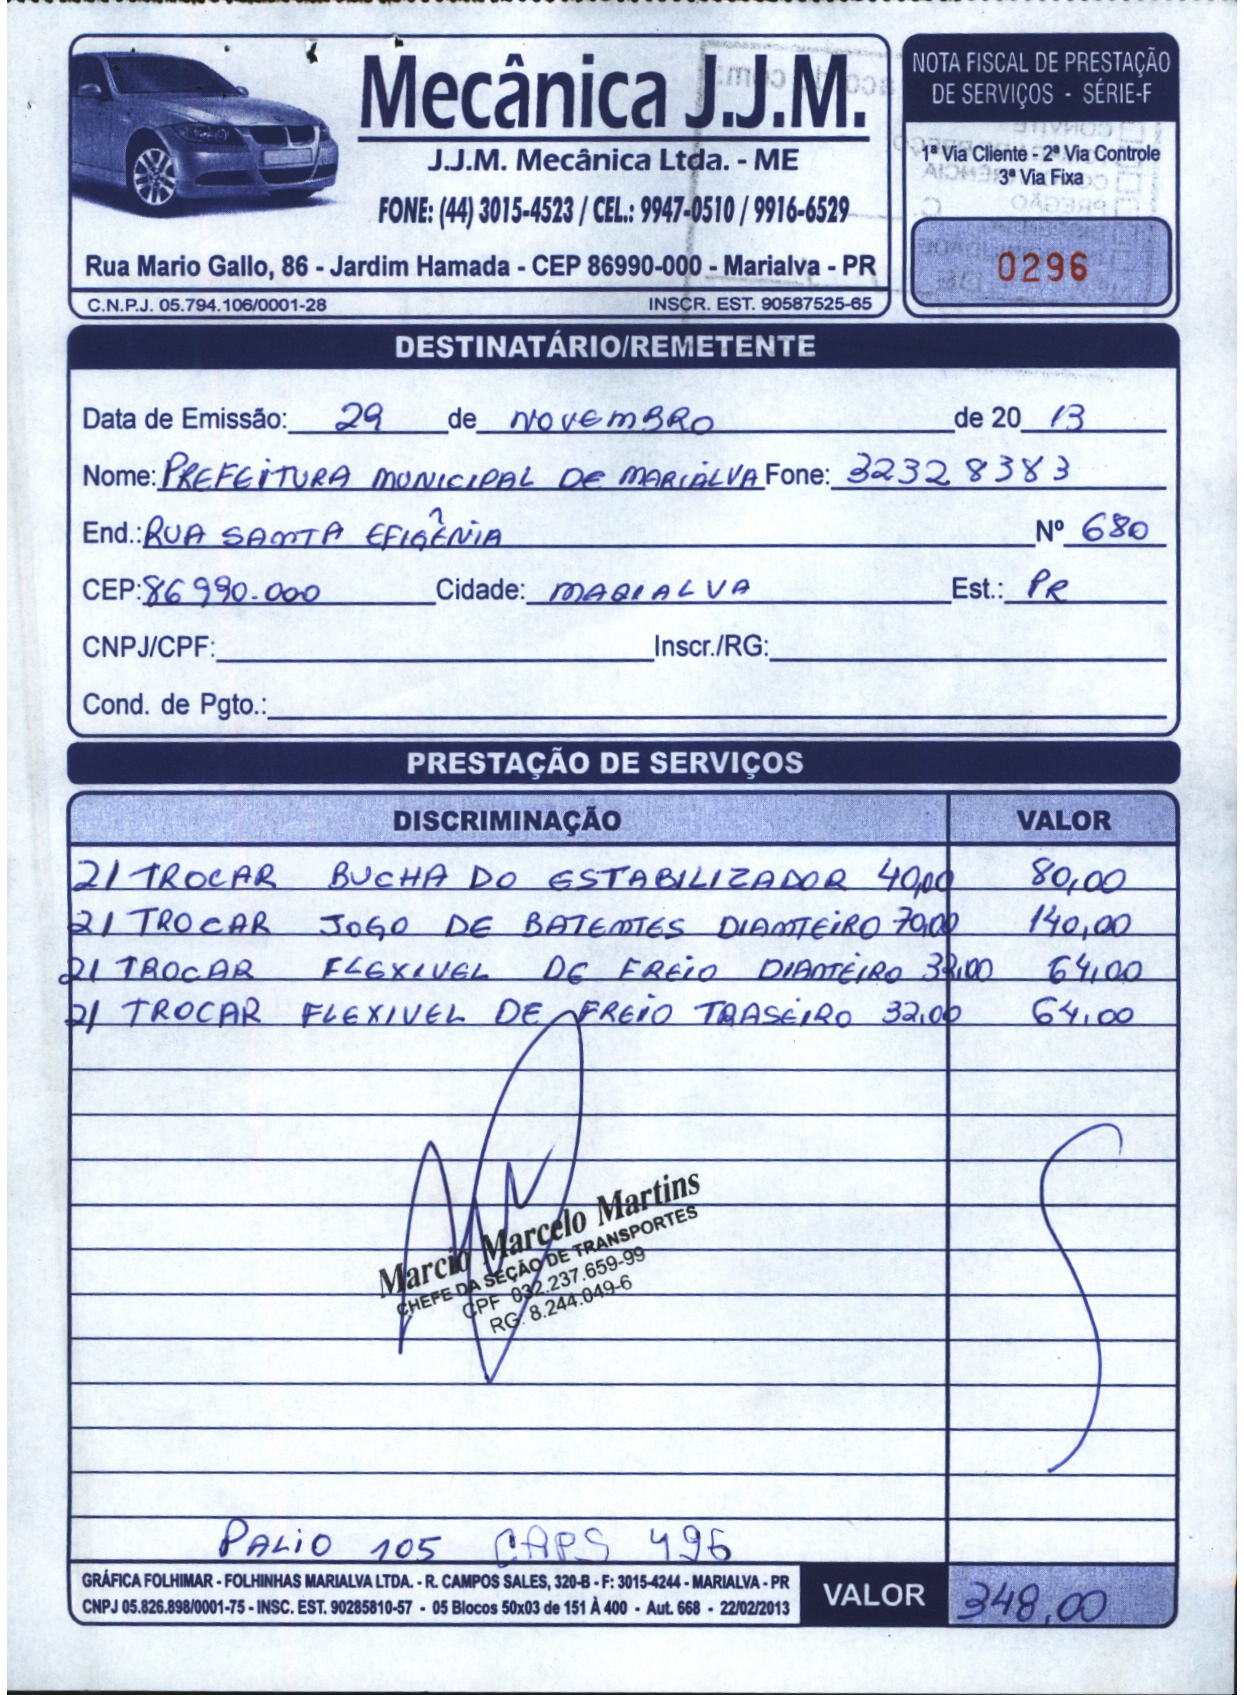 Mecânica J.J.M.
J.J.M. Mecânica Ltda. - ME
FONE: (44) 3015-4523 / CEL.: 9947-0510 / 9916-6529
Rua Mario Gallo, 86 - Jardim Hamada - CEP 86990-000 - Marialva - PR
C.N.P.J. 05.794.106/0001-28 INSCR. EST. 90587525-65
NOTA FISCAL DE PRESTAÇÃO
DE SERVIÇOS - SÉRIE-F
1ª Via Cliente - 2ª Via Controle
3ª Via Fixa
0296
DESTINATÁRIO/REMETENTE
Data de Emissão: 29 de NOVEMBRO de 20 13
Nome: PREFEITURA MUNICIPAL DE MARIALVA Fone: 32328383
End.: RUA SANTA EFIGÊNIA Nº 680
CEP: 86990.000 Cidade: MARIALVA Est.: PR
CNPJ/CPF: Inscr./RG:
Cond. de Pgto.:
PRESTAÇÃO DE SERVIÇOS
DISCRIMINAÇÃO VALOR
2/ TROCAR BUCHA DO ESTABILIZADOR 40,00 80,00
2/ TROCAR JOGO DE BATENTES DIANTEIRO 70,00 140,00
2/ TROCAR FLEXIVEL DE FREIO DIANTEIRO 32,00 64,00
2/ TROCAR FLEXIVEL DE FREIO TRASEIRO 32,00 64,00
Marcio Marcelo Martins
CHEFE DA SEÇÃO DE TRANSPORTES
CPF 032.237.659-99
RG. 8.244.049-6
PALIO 105 CAPS 496
GRÁFICA FOLHIMAR - FOLHINHAS MARIALVA LTDA. - R. CAMPOS SALES, 320-B - F: 3015-4244 - MARIALVA - PR
CNPJ 05.826.898/0001-75 - INSC. EST. 90285810-57 - 05 Blocos 50x03 de 151 À 400 - Aut. 668 - 22/02/2013
VALOR 348,00